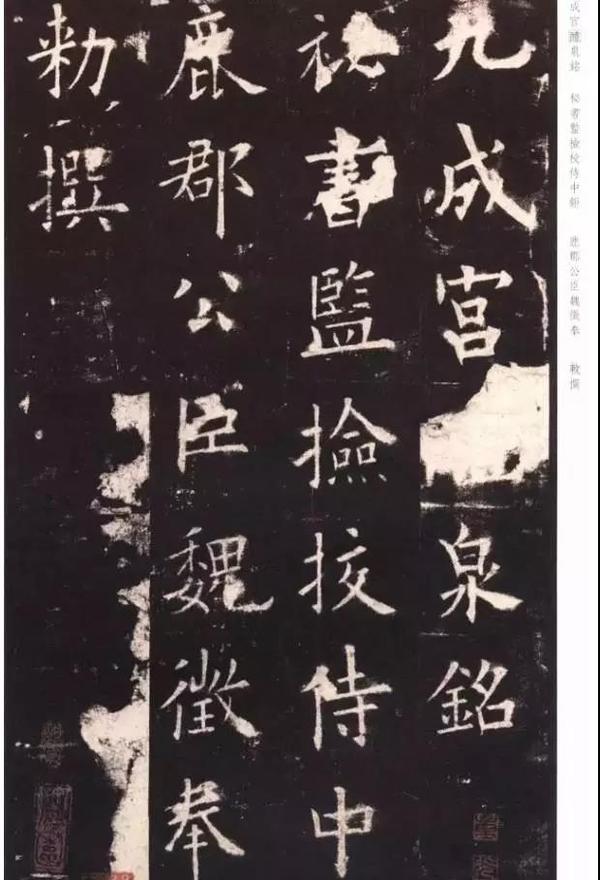 九成宫泉銘
祕書監撿挍侍中
鹿郡公臣魏徵奉
勑撰
成宫醴泉銘 秘書監檢校侍中鉅 鹿郡公臣魏徵奉 敕撰